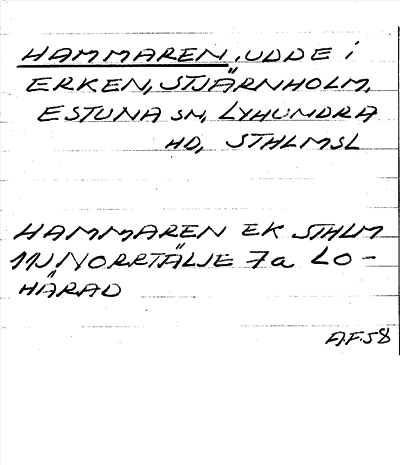 HAMMAREN, UDDE i
ERKEN, STJÄRNHOLM,
ESTUNA SN, LYHUNDRA
HD, STHLMSL
HAMMAREN EK STHLM
11J NORRTÄLJE 7a LO-
HÄRAD
AF58